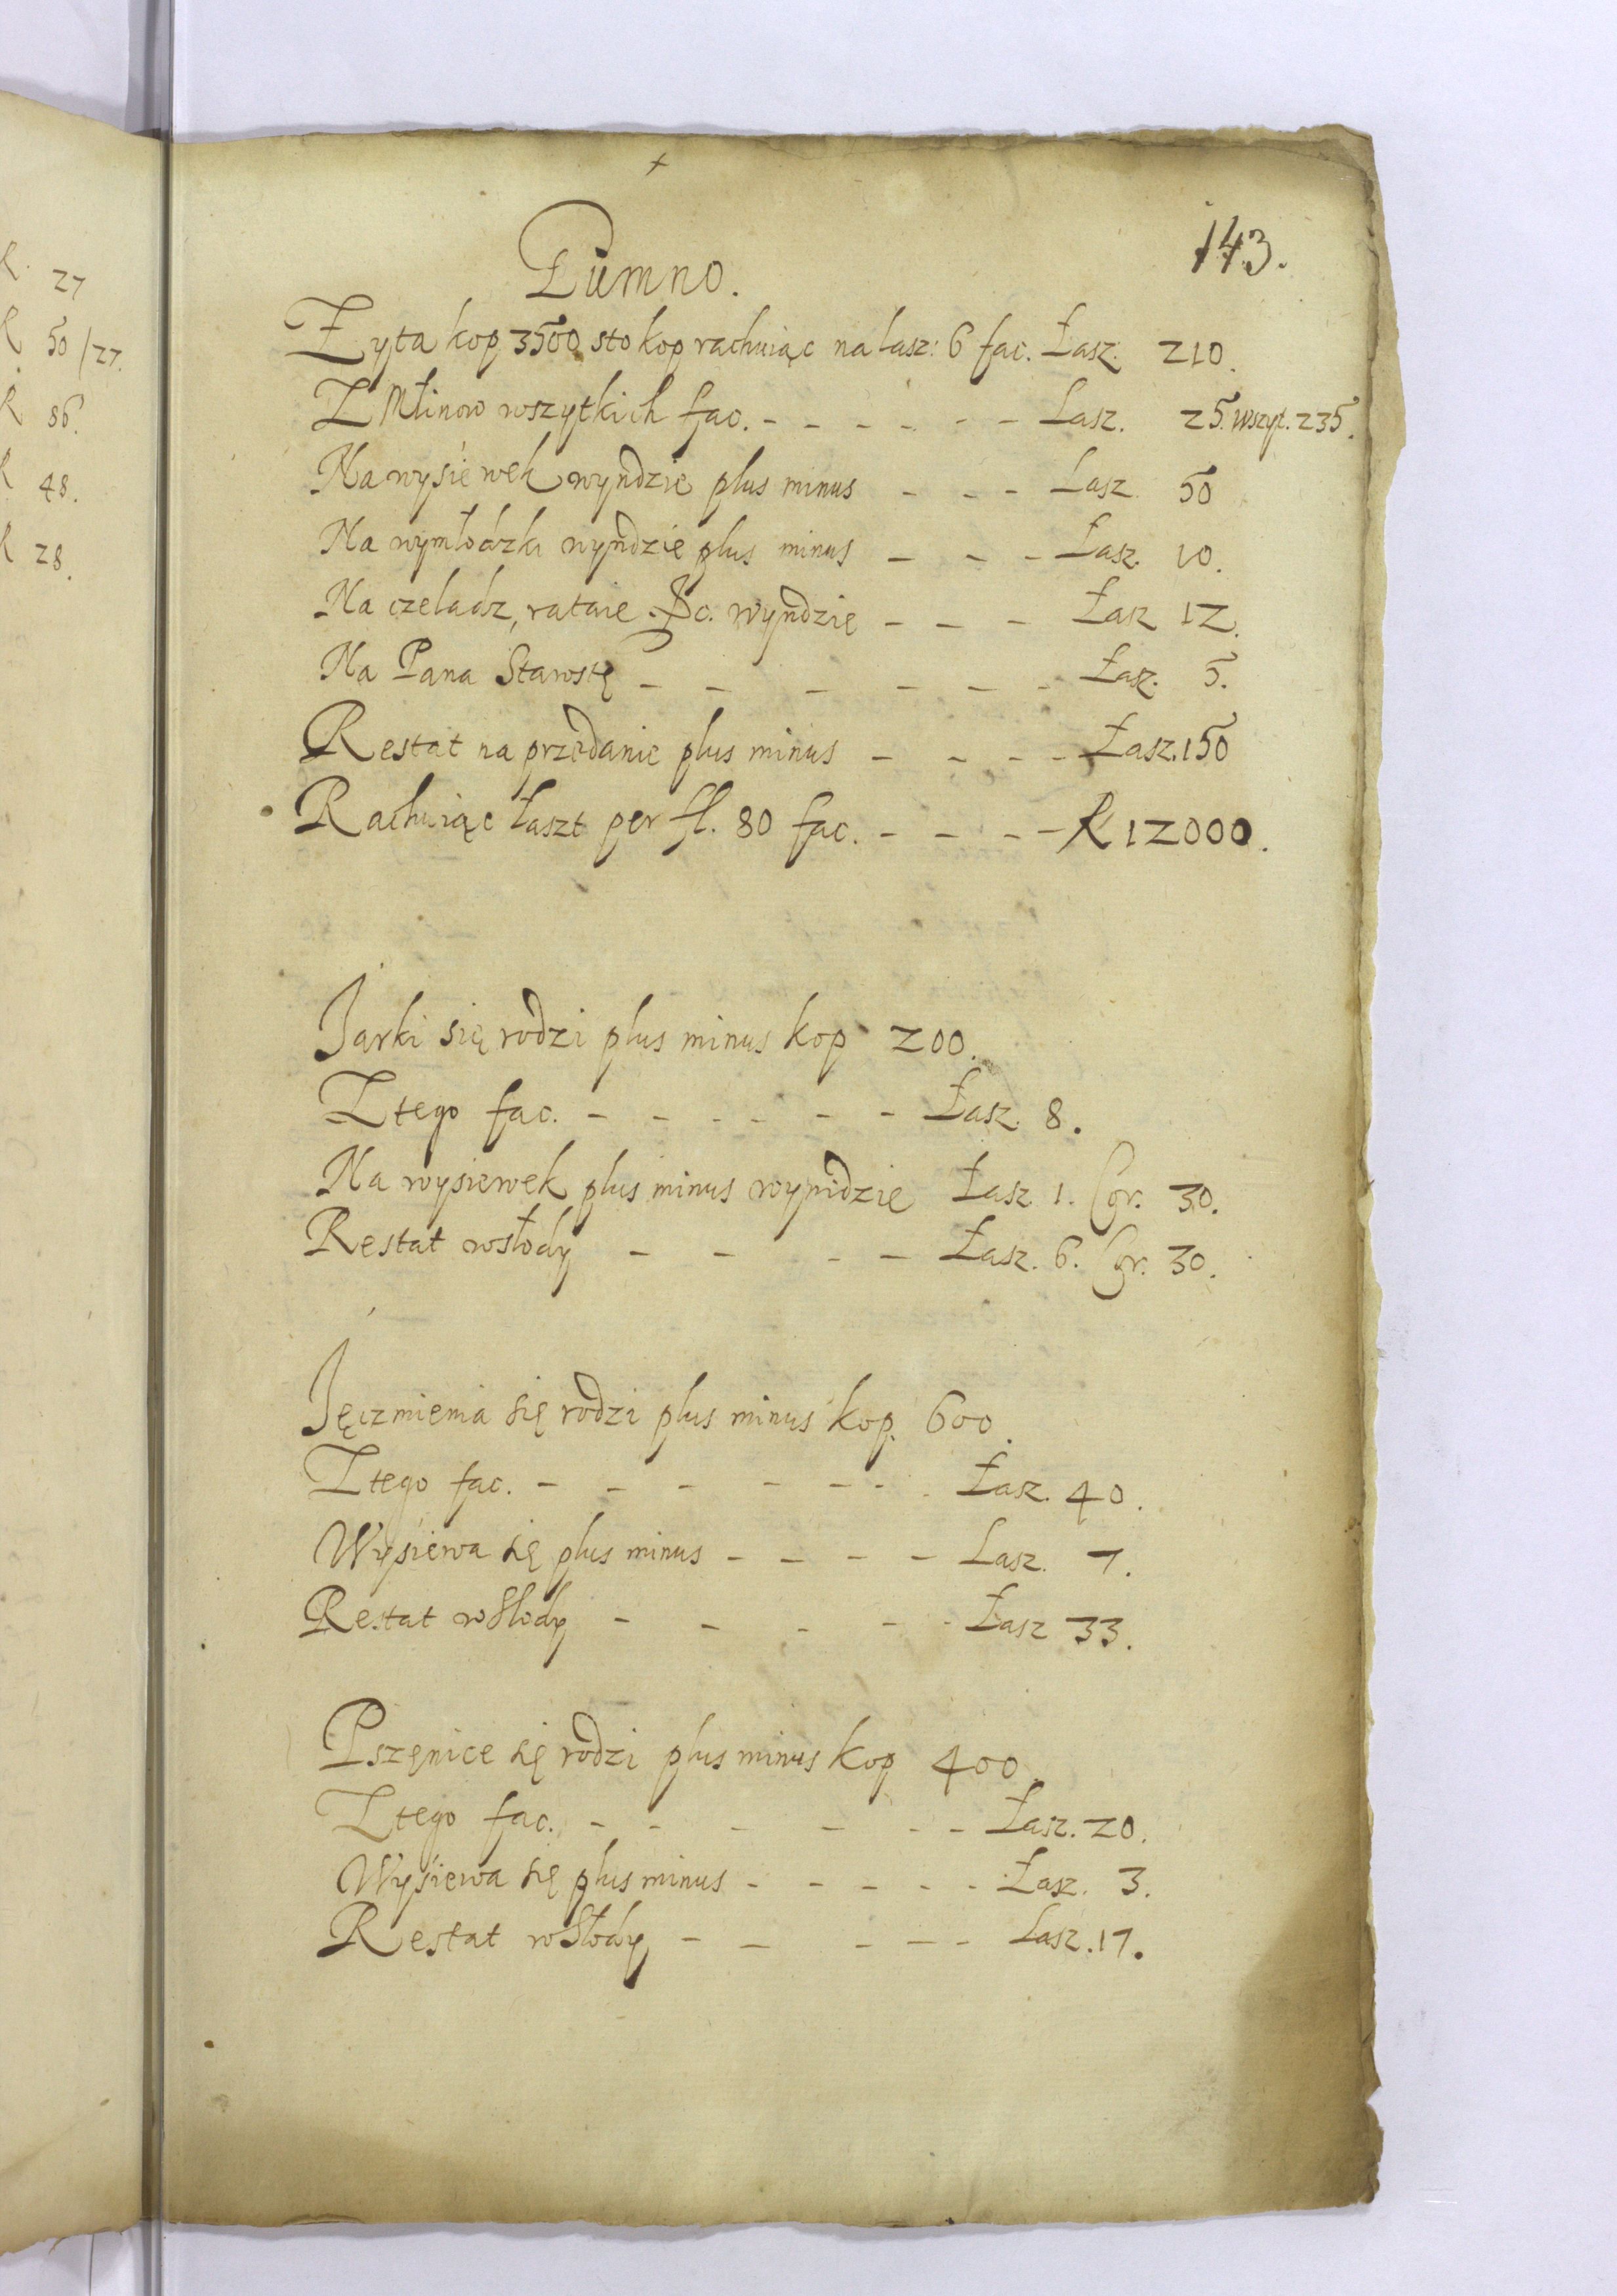 R 27
R 50/27.
R 86.
R 48.
R 28.
143.
Gumno.
Żyta kop 3500 sto kop rachuiąc na łasz: 6 fac. Łasz. 210.
Z Młinow wszytkich fac. - - - - - - Łasz. 25. wszyt. 235.
Na wysiewek wyndzie plus minus - - - Łasz 50
Na wymłoczki wyndzie plus minus - - - Łasz. 10.
Na czeladz, rataie &c. wyndzie - - - Łasz 12.
Na Pana Starostę - - - - - - Łasz. 5.
Restat na przedanie plus minus - - - - Łasz. 150
Rachuiąc łaszt per fl. 80 fac. - - - - R 12000.
Jarki się rodzi plus minus kop 200.
Z tego fac. - - - - - - Łasz. 8.
Na wysiewek plus minus wynidzie Łasz 1. Cor. 30.
Restat w słody - - - - Łasz. 6. Cor. 30.
Jęczmienia się rodzi plus minus kop. 600.
Z tego fac. - - - - - - Łasz. 40.
Wysiewa się plus minus - - - - Łasz. 7.
Restat w Słody - - - - - Łasz 33.
Pszenice się rodzi plus minus kop 400.
Z tego fac. - - - - - - Łasz. 20.
Wysiewa się plus minus - - - - - Łasz. 3.
Restat w Słody - - - - - Łasz. 17.